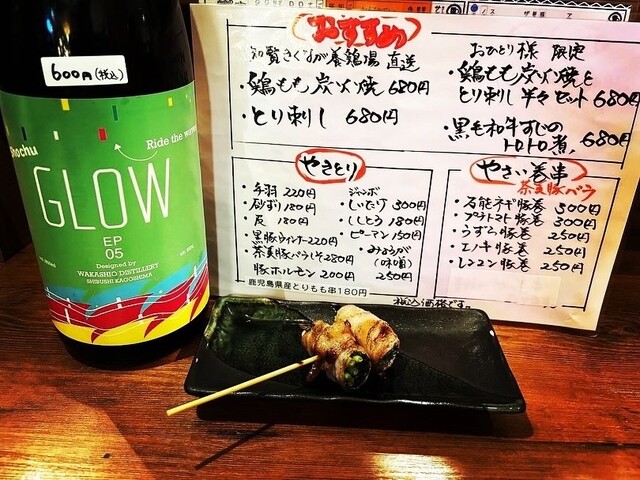 600円(税込)
Shochu
Ride the wave
GLOW
EP
05
Designed by
WAKASHIO DISTILLERY
SHIBUSHI KAGOSHIMA
おすすめ
知覧きくすが養鶏場 直送
・鶏もも炭火焼 680円
・とり刺し 680円
おひとり様 限定
・鶏もも炭火焼と
とり刺し 半々セット 680円
・黒毛和牛すじの
トロトロ煮 680円
やきとり
・手羽 220円
・砂ずり 180円
・皮 180円
・黒豚ウィンナー 220円
・茶美豚バラしそ 280円
・豚ホルモン 200円
・鹿児島県産とりもも串180円
ジャンボ
・しいたけ 300円
・ししとう 180円
・ピーマン 150円
・みょうが
(味噌)
250円
やさい巻串
茶美豚バラ
・万能ネギ豚巻 300円
・プチトマト豚巻 300円
・うずら豚巻 250円
・エノキ豚巻 250円
・レンコン豚巻 250円
税込価格です。